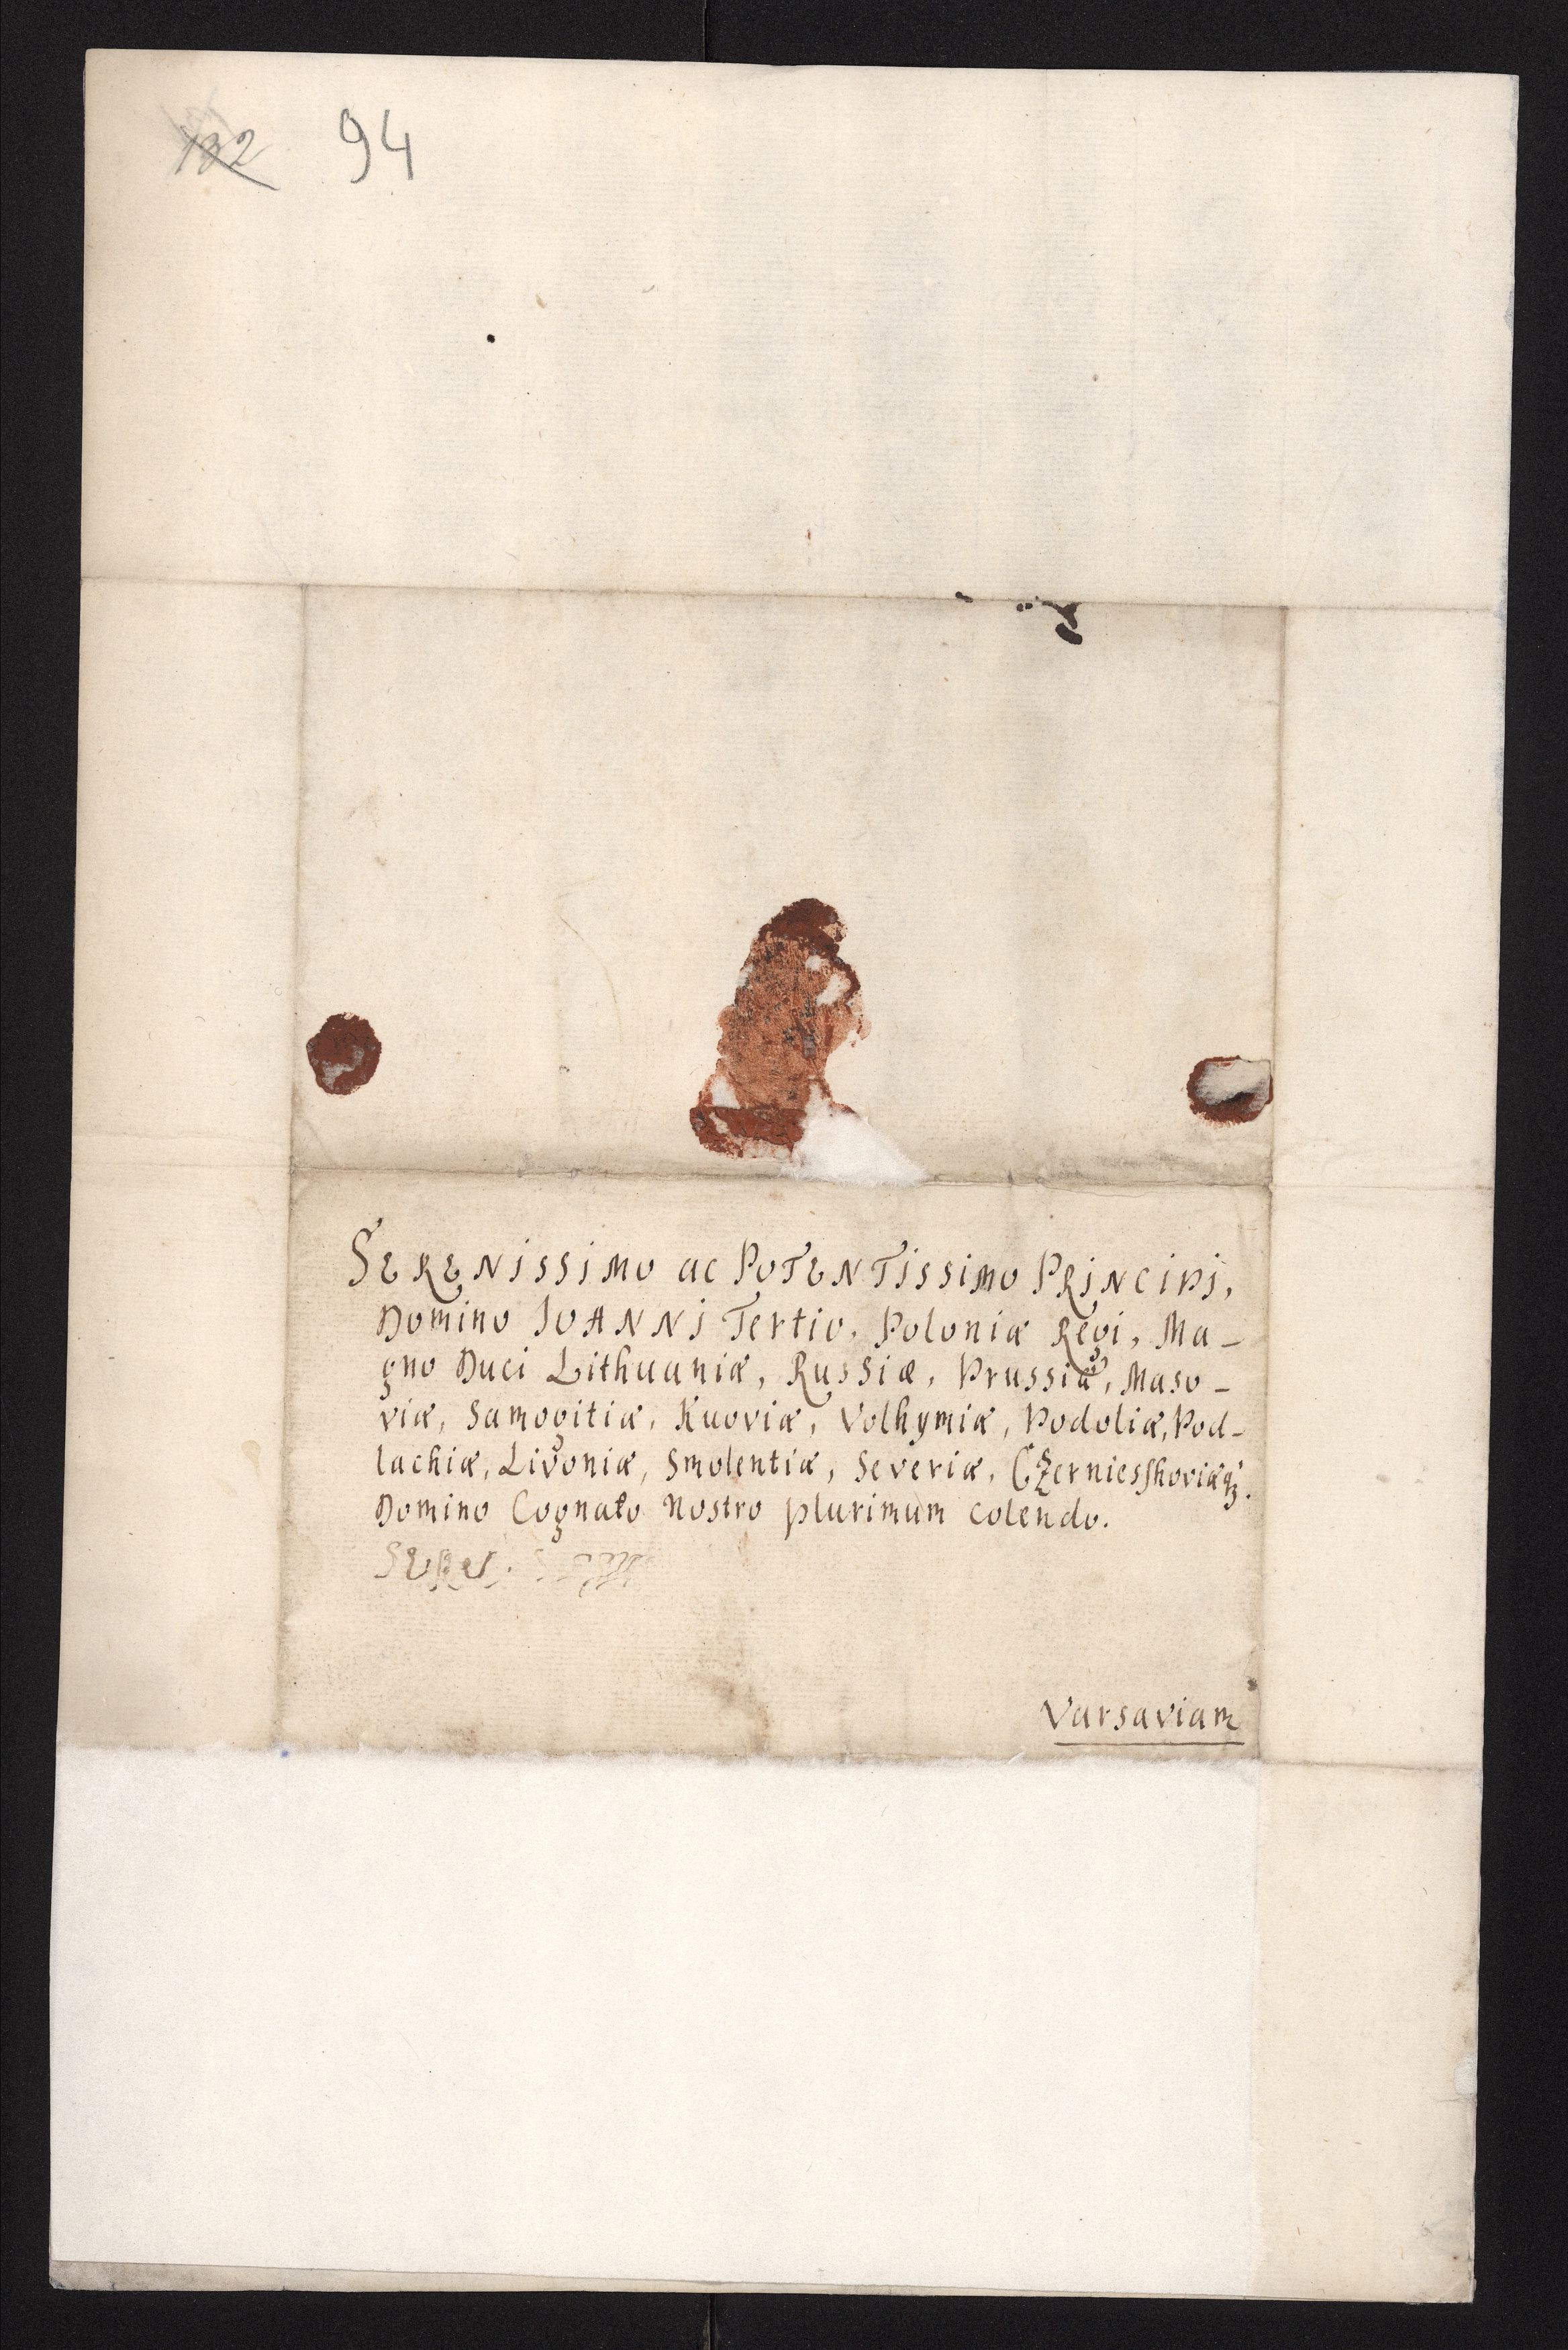 132 94
SERENISSIMO ac POTENTISSIMO PRINCIPI,
Domino IOANNI Tertio, Poloniæ Regi, Ma-
gno Duci Lithuaniæ, Russiæ, Prussiæ, Maso-
viæ, Samogitiæ, Kuoviæ, Volhymiæ, Podoliæ, Pod-
lachiæ, Livoniæ, Smolentiæ, Severiæ, Czerniesshoviæq;.
Domino Cognato Nostro plurimum colendo.
Varsaviam